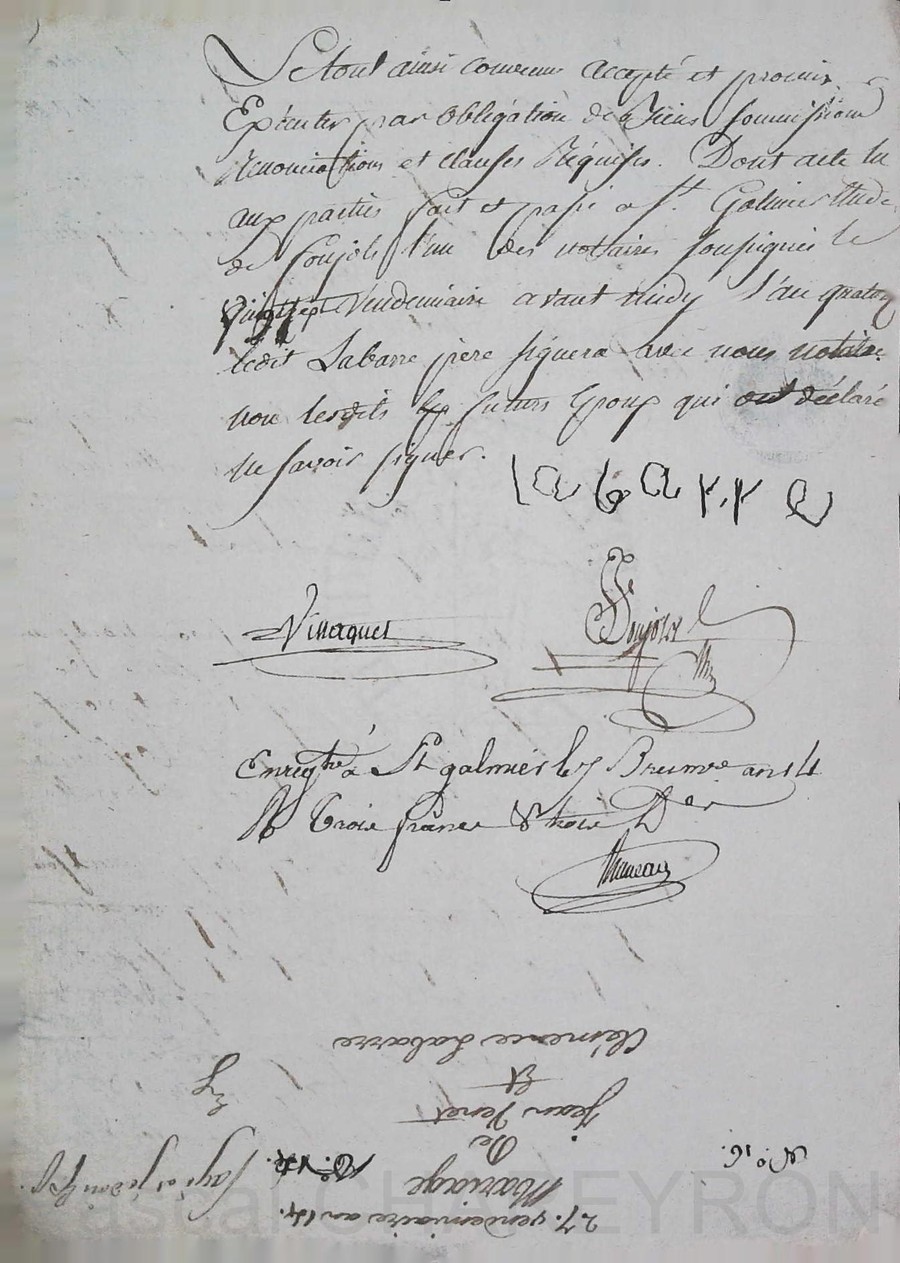 Le tout ainsi convenu accepté et promis
Exécuter par obligation de Biens soumissions
Renonciations et clauses Réquises. Dont acte lu
aux parties fait et passé a St. Galmier Etude
de Soujols l'un des notaires soussignés le
Vendemiaire avant midy l'an quatorz
ledit Labarre père signera avec nous notaire
non lesdits futurs Epoux qui ont déclaré
ne savoir signer.
labarre
Villaques
Soujols
Enregtré à St galmier le 7 Brumre an 14
R trois francs & trois
27. vendemiaire an 14.
Mariage
De
Jean Venet
Et
Clémence Labarre
No. 16.
Pascal CHAPEYRON